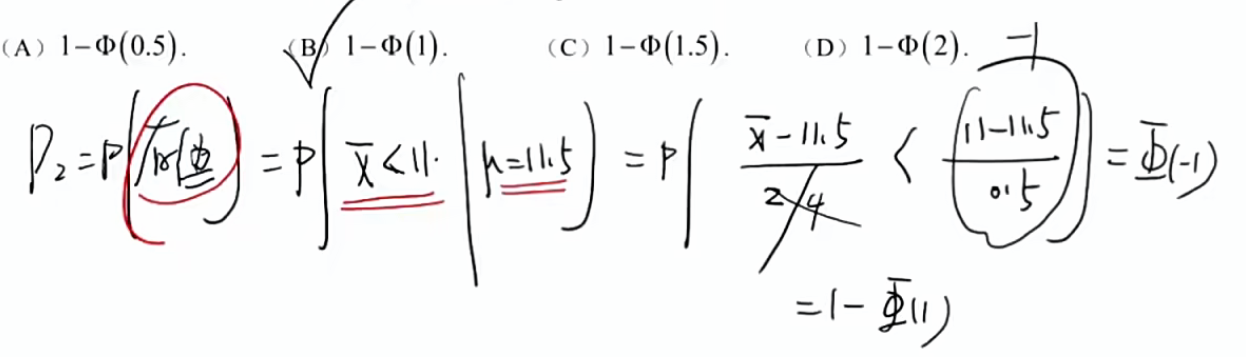 (A) 1-Φ(0.5). (B) 1-Φ(1). (C) 1-Φ(1.5). (D) 1-Φ(2).
-1
P₂=P( | ) = P( x̄<11. | μ=11.5 ) = P( (x̄-11.5)/(2/4) < (11-11.5)/0.5 ) = Φ(-1)
=1-Φ(1)